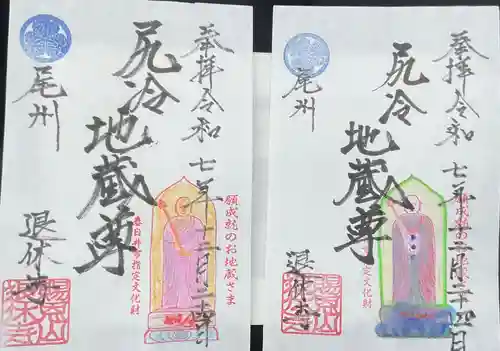 奉拝令和七年十二月二十四日
願成就のお地蔵さま
春日井市指定文化財
尻冷
地蔵尊
尾州
退休寺
奉拝令和七年十二月二十四日
願成就のお地蔵
定文化財
尻冷
地蔵尊
尾州
退休寺